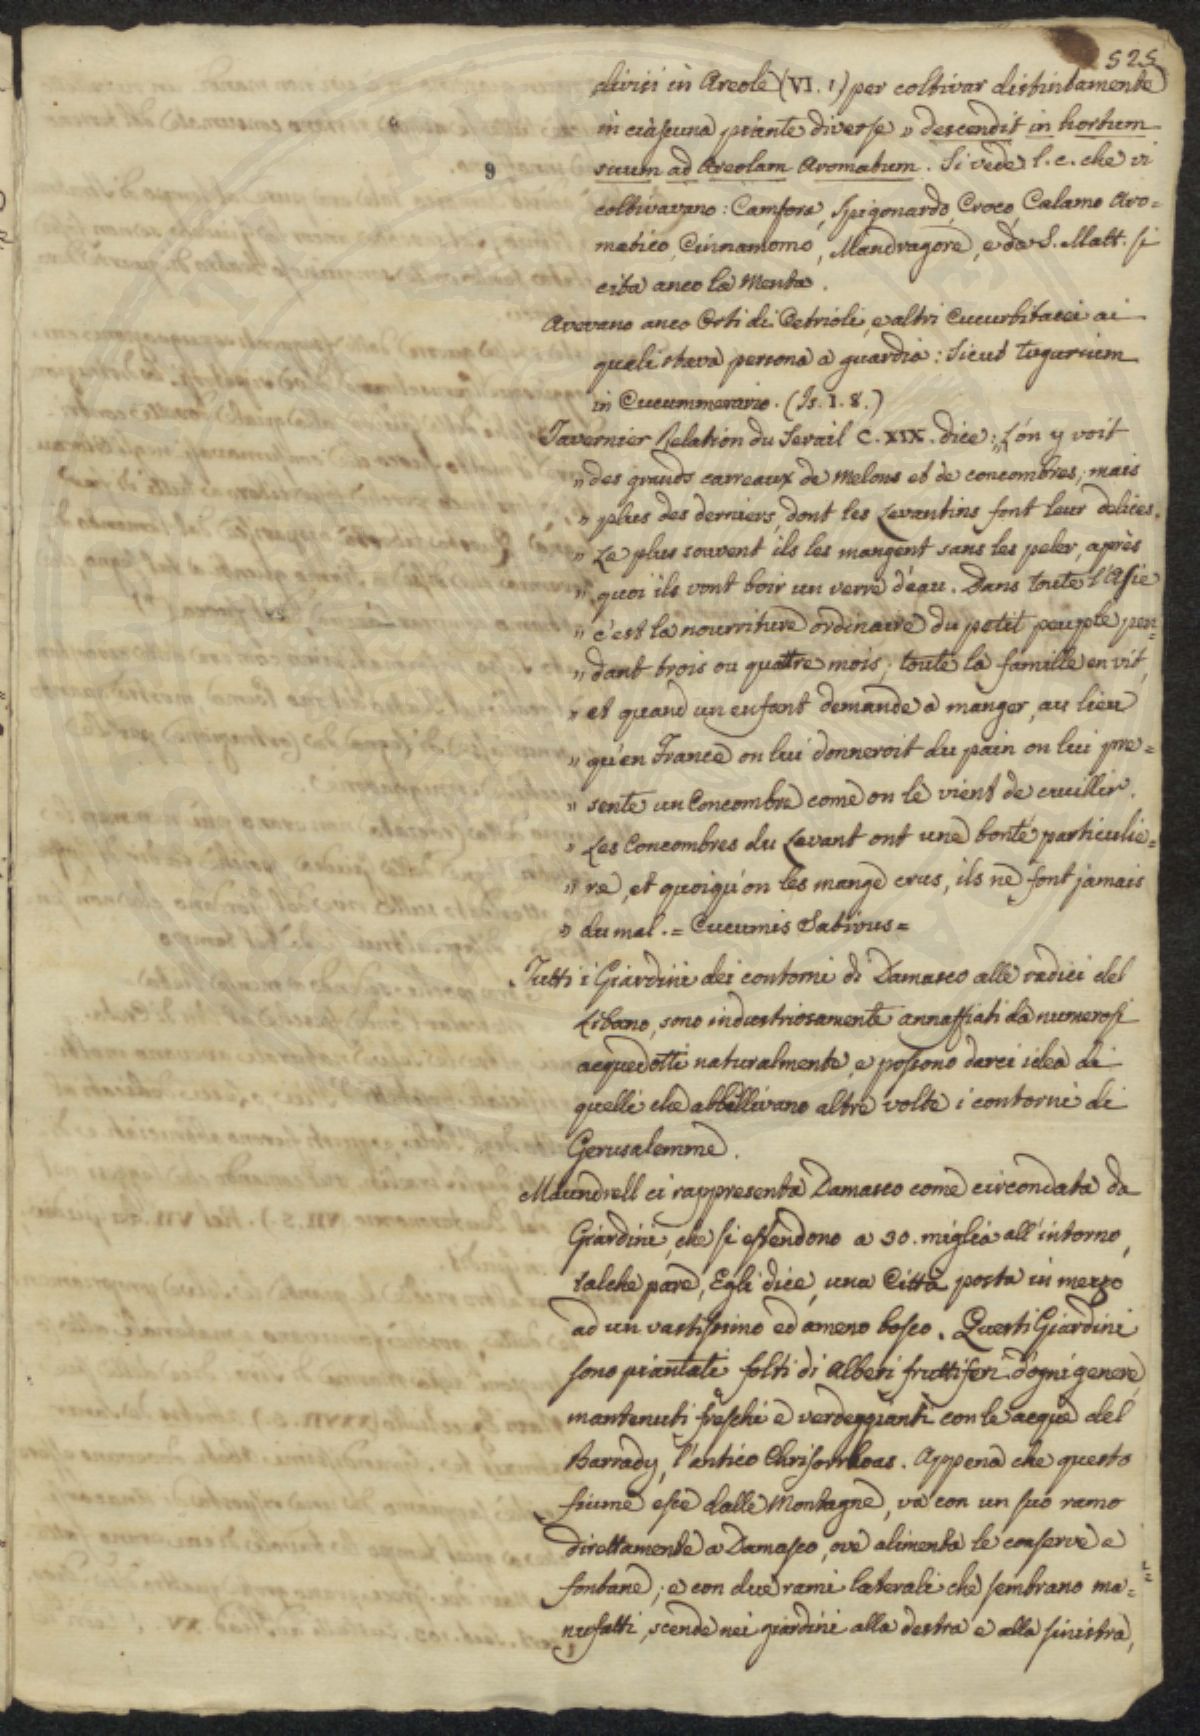 525
divisi in Areole (VI. 1) per coltivar distintamente
in ciascuna piante diverse „ descendit in hortum
suum ad Areolam Aromatum. Si vede l. c. che vi
coltivavano: Camfora, Spigonardo, Croco, Calamo Aro=
matico, Cinnamomo, Mandragore, e da S. Matt. si
cita anco la Menta.
Avevano anco Orti di Cetrioli, e altri Cucurbitacei ai
quali stava persona a guardia: Sicut Tugurium
in Cucummerario. (Is. 1. 8.)
Tavernier Relation du Serail C. XIX. dice: „ L'on y voit
„ des grands carreaux de Melons et de concombres; mais
„ plus des derniers, dont les Levantins font leur delices.
„ Le plus souvent ils les mangent sans les peler, après
„ quoi ils vont boir un verre d'éau. Dans toute l'Asie
„ c'est la nourriture ordinaire du petit peuple pen=
„ dant trois ou quattre mois; toute la famille en vit,
„ et quand un enfant demande a manger, au lieu
„ qu'en France on lui donneroit du pain on lui pre=
„ sente un Concombre come on le vient de cuillir.
„ Les Concombres du Levant ont une bonté particulie=
„ re, et quoiqu'on les mange crus, ils ne font jamais
„ du mal. = Cucumis Sativus =
Tutti i Giardini dei contorni di Damasco alle radici del
Libano, sono industriosamente annaffiati da numerosi
acquedotti naturalmente, e possono darci idea di
quelli che abbellivano altre volte i contorni di
Gerusalemme.
Maundrell ci rappresenta Damasco come circondata da
Giardini, che si estendono a 30. miglia all'intorno,
talche pare, Egli dice, una Città posta in mezzo
ad un vastissimo ed ameno bosco. Questi Giardini
sono piantati folti di Alberi fruttiferi d'ogni genere,
mantenuti freschi e verdeggianti con le acque del
Barrady, l'antico Chrisorrhoas. Appena che questo
fiume esce dalle Montagne, va con un suo ramo
direttamente a Damasco, ove alimenta le conserve e
fontane; e con due rami laterali che sembrano ma=
nufatti, scende nei giardini alla destra e alla sinistra,